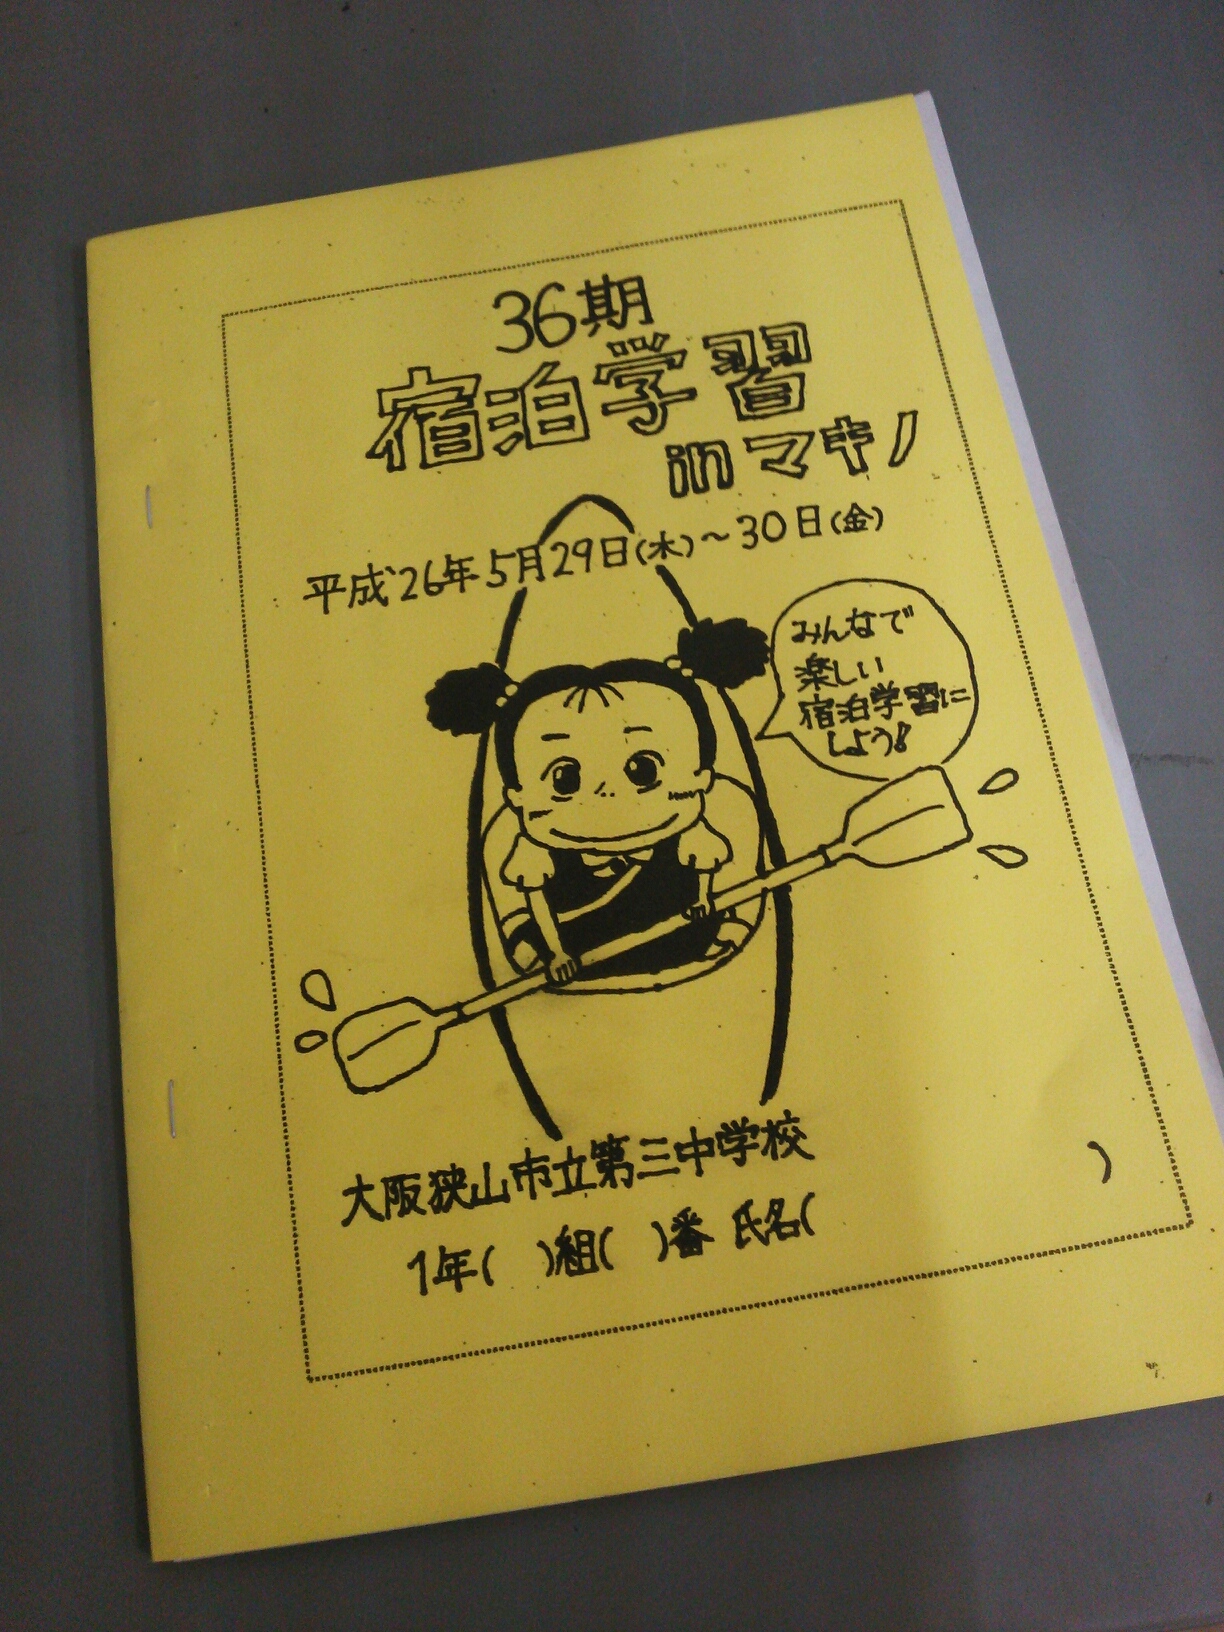 36期
宿泊学習
inマキノ
平成26年5月29日(木)～30日(金)
みんなで
楽しい
宿泊学習に
しよう!
大阪狭山市立第三中学校
1年( )組( )番 氏名( )